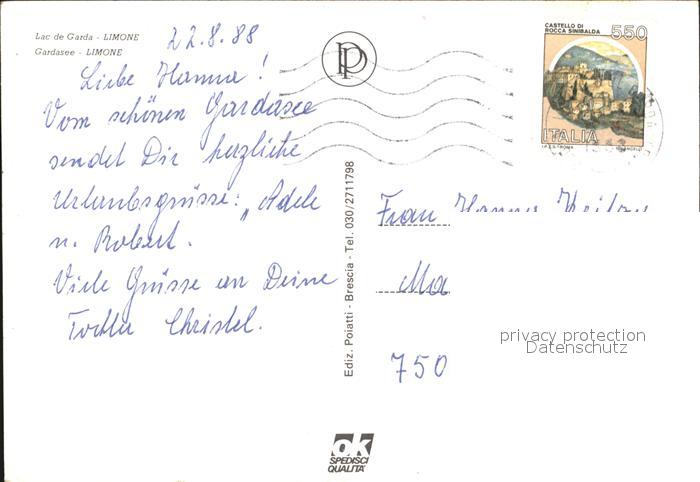 Lac de Garda - LIMONE
Gardasee - LIMONE
22.8.88
Liebe Hanna!
Vom schönen Gardasee
sendet Dir herzliche
Urlaubsgrüsse: „Adele
u. Robert.
Viele Grüsse an Deine
Tochter Christel.
P
Ediz. Poiatti - Brescia - Tel. 030/2711798
CASTELLO DI
ROCCA SINIBALDA
550
ITALIA
I.P.Z.S. ROMA
Frau Hanna
Ma
750
privacy protection
Datenschutz
ok
SPEDISCI
QUALITA'